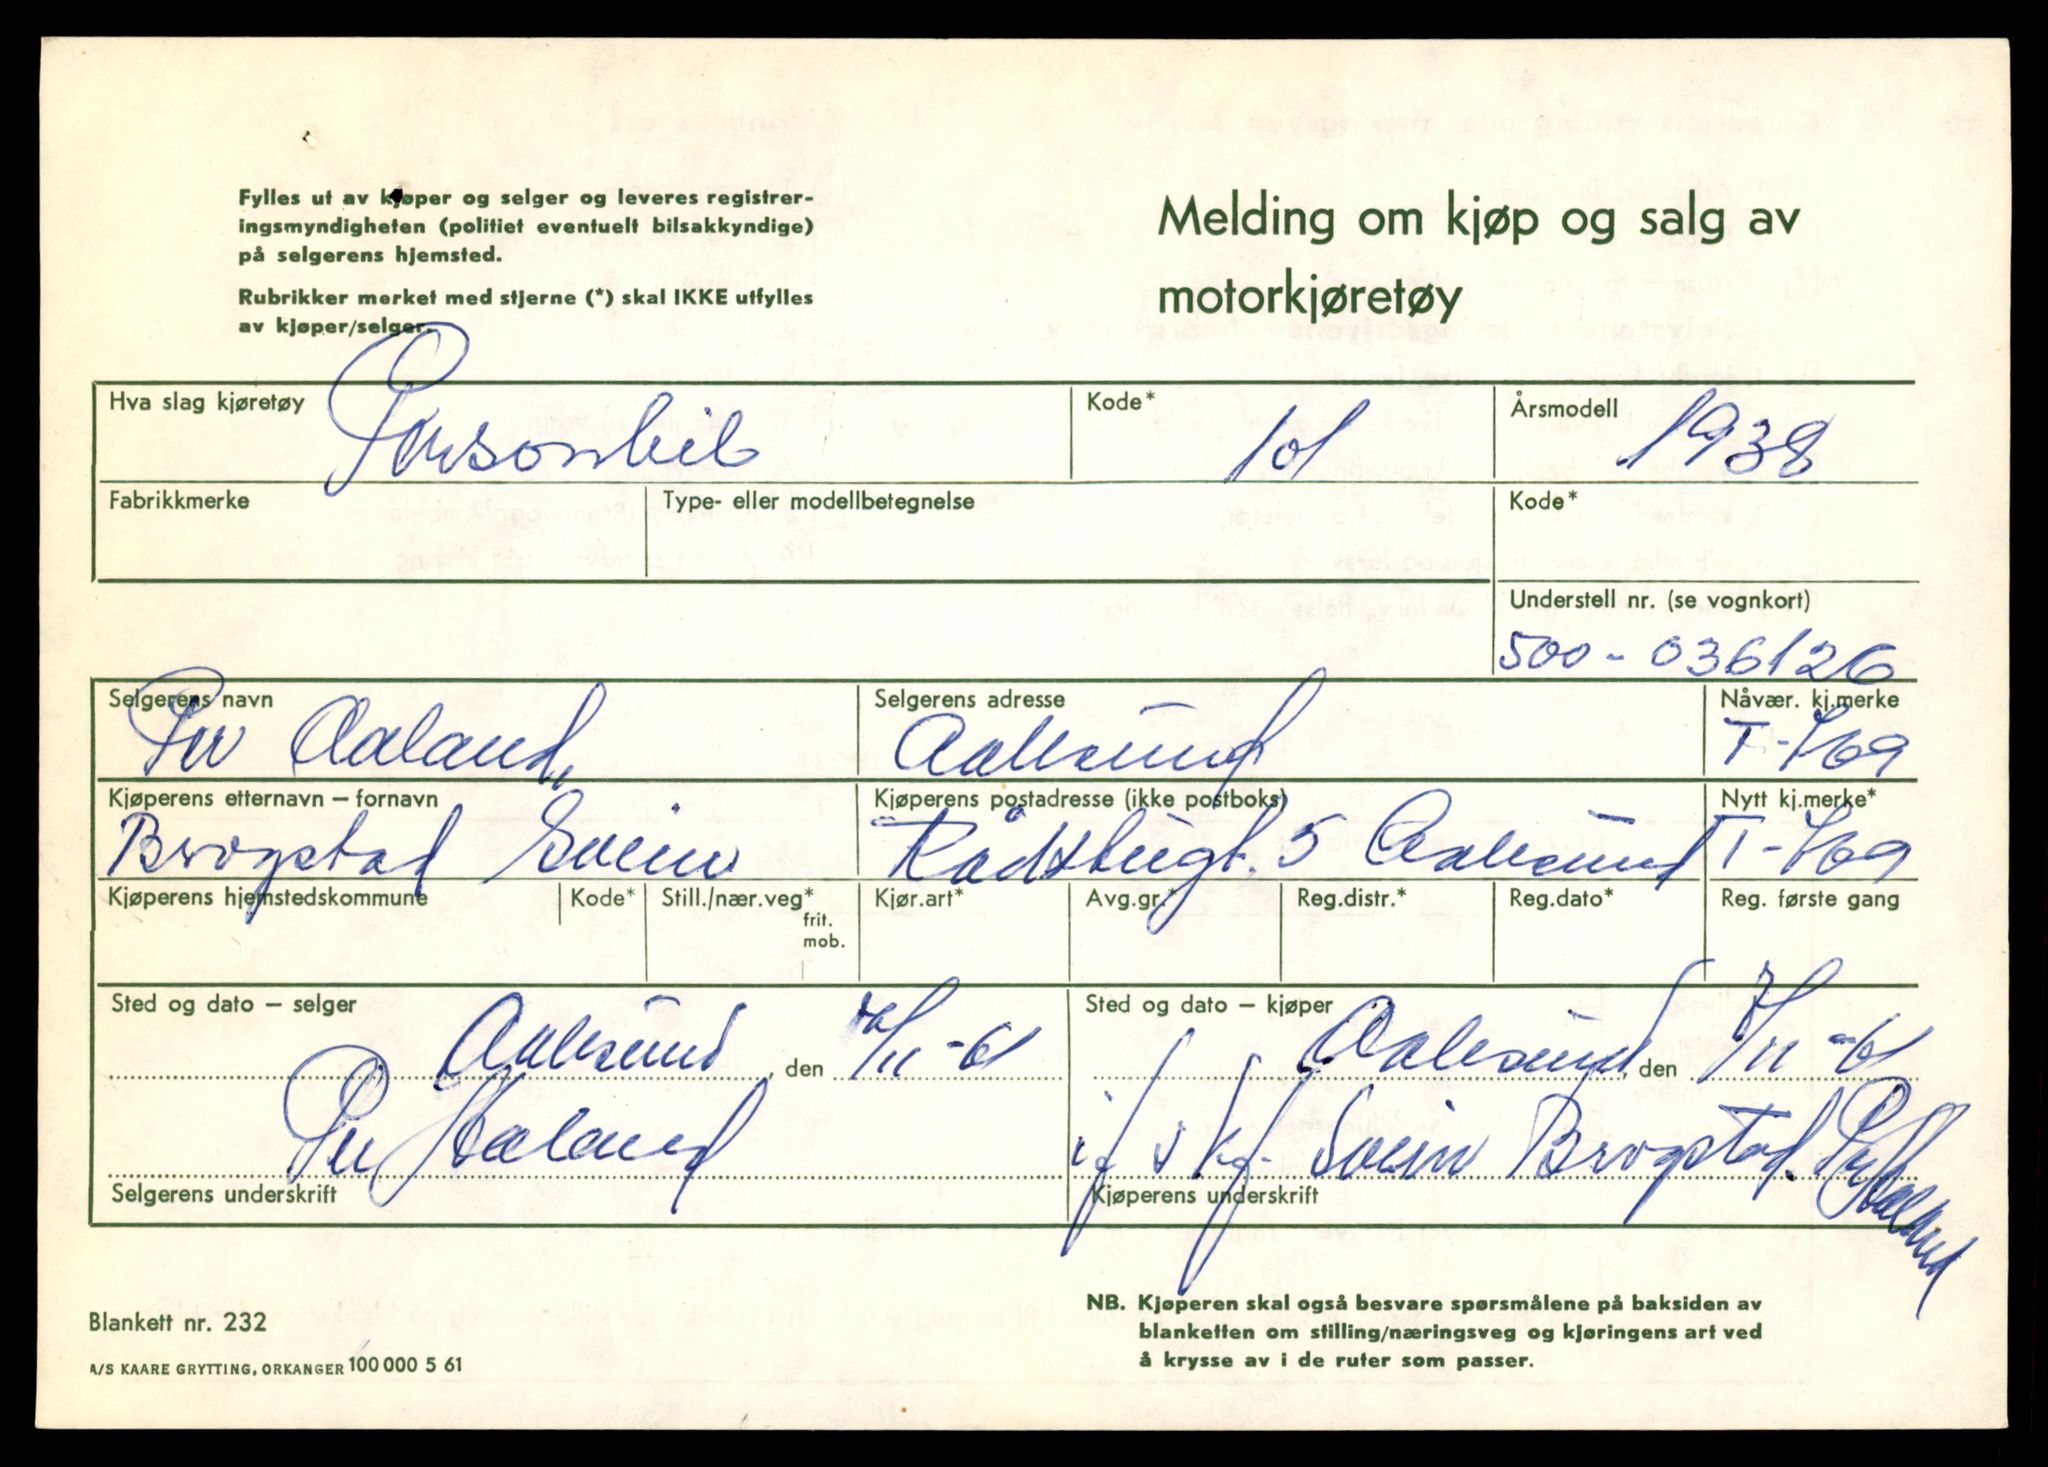 Fylles ut av kjøper og selger og leveres registrer-
ingsmyndigheten (politiet eventuelt bilsakkyndige)
på selgerens hjemsted.
Rubrikker merket med stjerne (*) skal IKKE utfylles
av kjøper/selger.
Melding om kjøp og salg av
motorkjøretøy
Hva slag kjøretøy Personbil
Kode* 101
Årsmodell 1938
Fabrikkmerke
Type- eller modellbetegnelse
Kode*
Understell nr. (se vognkort)
500-036126
Selgerens navn
Per Aaland
Selgerens adresse
Aalesund
Nåvær. kj.merke
T-769
Kjøperens etternavn – fornavn
Brogstad Svein
Kjøperens postadresse (ikke postboks)
Rådstugt. 5 Aalesund
Nytt kj.merke*
T-769
Kjøperens hjemstedskommune
Kode*
Still./nær.veg*
frit.
mob.
Kjør.art*
Avg.gr.*
Reg.distr.*
Reg.dato*
Reg. første gang
Sted og dato – selger
Aalesund, den /11-61
Per Aaland
Selgerens underskrift
Sted og dato – kjøper
Aalesund, den 7/11-61
Svein Brogstad. Per Aaland
Kjøperens underskrift
Blankett nr. 232
A/S KAARE GRYTTING, ORKANGER 100 000 5 61
NB. Kjøperen skal også besvare spørsmålene på baksiden av
blanketten om stilling/næringsveg og kjøringens art ved
å krysse av i de ruter som passer.